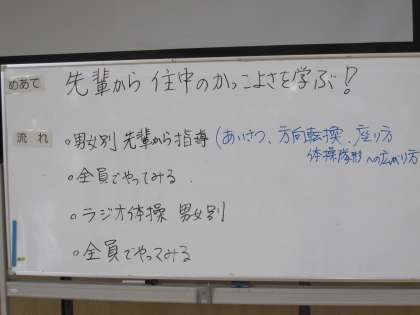 めあて 先輩から住中のかっこよさを学ぶ!
流れ 。男女別 先輩から指導(あいさつ、方向転換、座り方
体操隊形への広がり方
。全員でやってみる
。ラジオ体操 男女別
。全員でやってみる